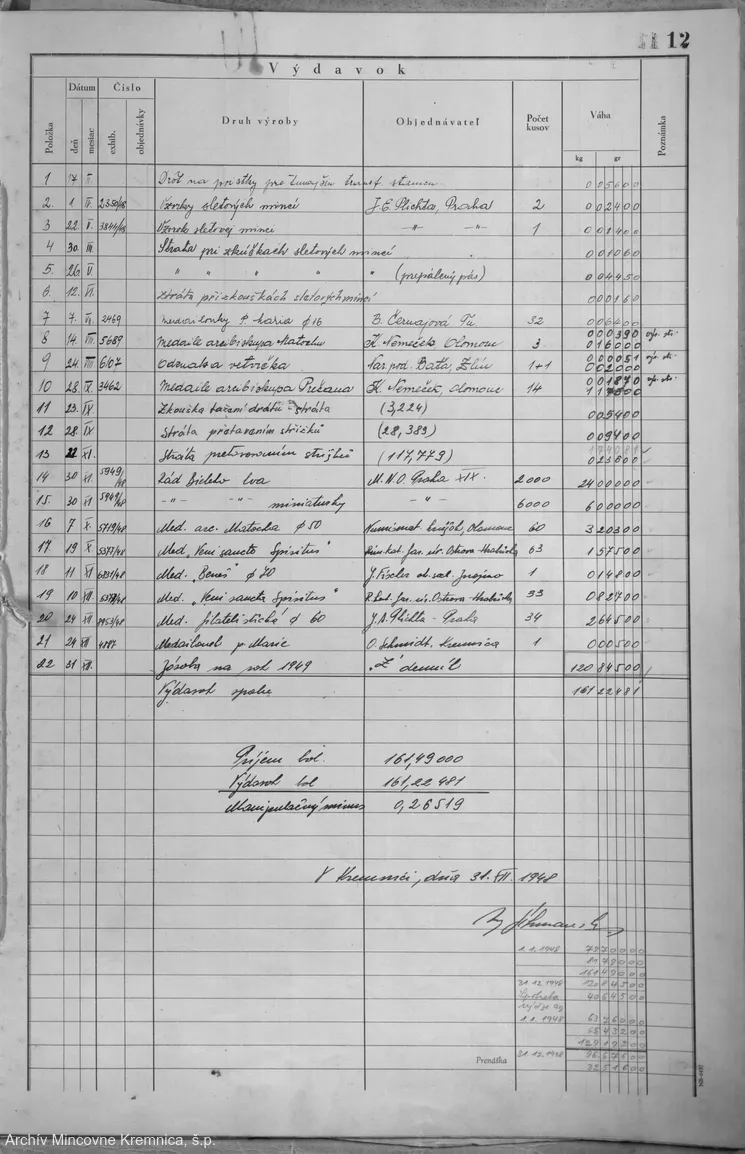 12
Výdavok
Položka Dátum Číslo Druh výroby Objednávateľ Počet kusov Váha Poznámka
deň mesiac exhib. objednávky kg gr
1 17 II. Drôt na prietky pre 005600
2. 1 V. 2350/48 Vzorky sletových mincí J. E. Plichta, Praha 2 002400
3 22 V. 3844/48 Vzorok sletovej mincí -"- -"- 1 001400
4 30. III. Strata pri zkúškách sletových mincí 001060
5. 26. V. " " " " " (prepálený pás) 004450
6. 12. VI. Ztráta při zkouškách sletových mincí 000160
7 7. VI. 2469 Medailonky P. Maria φ 16 B. Černajová Tu 32 006400
8 14. VII. 5689 Medaile arcibiskupa Matochu K. Němeček Olomouc 3 000390
016000
9 24. VIII 6107 Odznaka vetvička Nar. pod. Baťa, Zlín 1+1 000051
002000
10 28. IX. 3462 Medaile arcibiskupa Prečana K. Němeček, Olomouc 14 001870
117500
11 23. IX. Zkouška tažení drátu - stráta (3,224) 005400
12 28. IX Stráta pretavením stričkú (28,389) 009400
13 22 XI. Strata pretavovaním (117,779) 023800
14 30 XI. 5949/48 Rád Bieleho leva M.N.O. Praha XIX. 2000 2400000
15. 30 XI 5949/48 -"- -"- miniaturky -"- 6000 600000
16 7 X. 5719/48 Med. arc. Matocha φ 50 Numismat. krúžok, Olomouc 60 320300
17 19 X. 5377/48 Med. „Veni sancte Spiritus" Rím. kat. far. úr. Ostrava-Hrabůvka 63 157500
18 11 XI 6231/48 Med. „Beneš" φ 70 J. Fischer ob. sekr. Znojmo 1 014800
19 10 XII. 5377/48 Med. „Veni sancte Spiritus" R. kat. far. úr. Ostrava-Hrabůvka 33 082700
20 24 XII 7953/48 Med. filatelistická φ 60 J. A. Plichta - Praha 34 264500
21 24 XII 4187 Medailonek p. Marie O. Schmidt, Kremnica 1 000500
22 31 XII. Zásoba na rok 1949 „Z" denník 120 84500
Výdavok spolu 161 22481
Príjem bol. 161,49000
Výdavok bol 161,22481
Manipulačný mínus 0,26519
V Kremnici, dňa 31. XII. 1948
1.1.1948 7970000
8179000
16149000
31.12.1948 12084500
Spotreba 4064500
1.1.1948
Prenáška 31.12.1948
Archív Mincovne Kremnica, š.p.